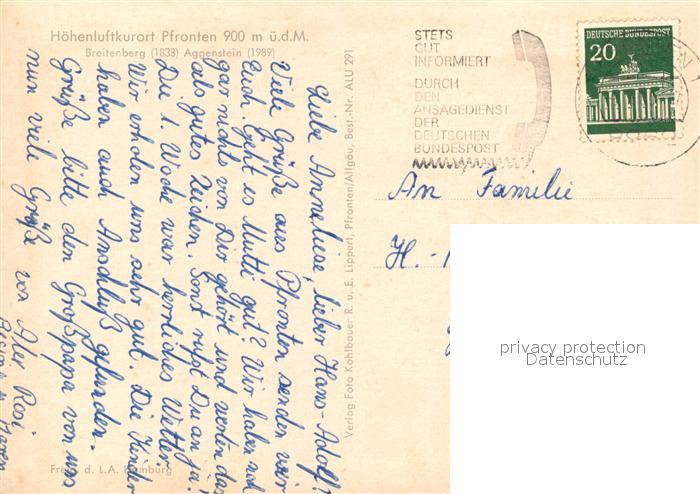 Höhenluftkurort Pfronten 900 m ü.d.M.
Breitenberg (1838) Aggenstein (1989)
Liebe Anneliese, lieber Hans-Adolf!
Viele Grüße aus Pfronten senden wir
Euch. Geht es Mutti gut? Wir haben noch
gar nichts von Dir gehört und werten das
als gutes Zeichen. Sonst rufst Du an ja!
Die 1. Woche war herrliches Wetter.
Wir erholen uns sehr gut. Die Kinder
haben auch Anschluß gefunden.
Grüße bitte den Großpapa von uns
nun viele Grüße
von Alex Rosi
Verlag Foto Kohlbauer R. u. E. Lipperl, Pfronten/Allgäu, Best.-Nr. ALU 291
Freig. d. L.A. Hamburg
STETS
GUT
INFORMIERT
DURCH
DEN
ANSAGEDIENST
DER
DEUTSCHEN
BUNDESPOST
DEUTSCHE BUNDESPOST
20
An Familie
H.-
privacy protection
Datenschutz